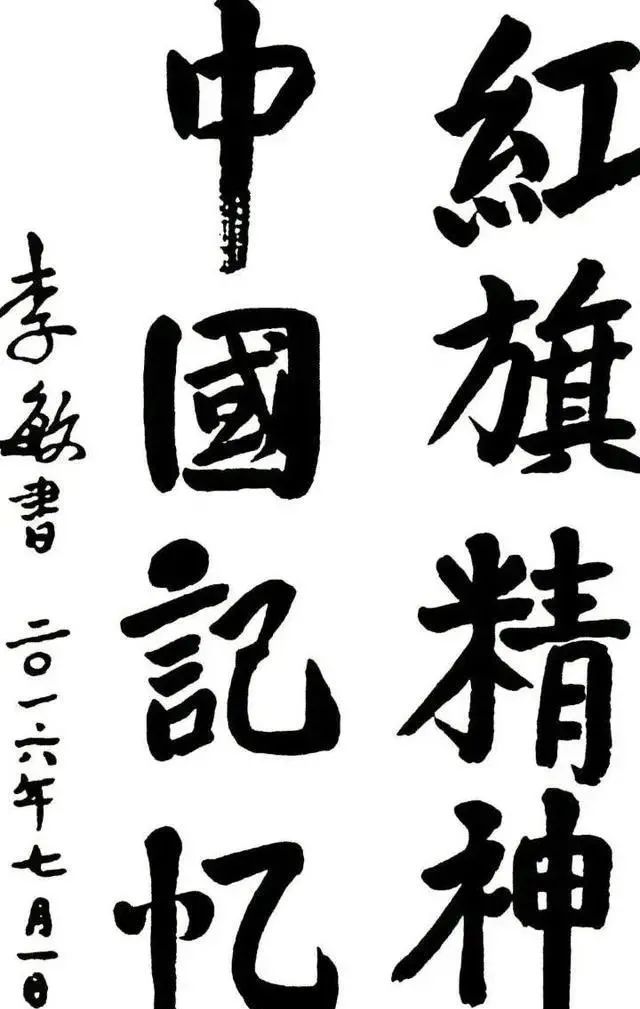 紅旗精神
中國記忆
李敏書 二〇一六年七月一日